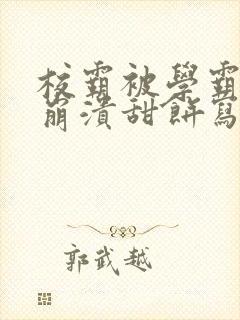 校霸被學霸
崩潰甜餅寫
郭武越